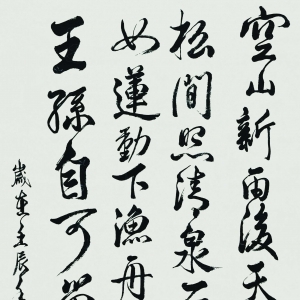 空山新雨後天
松間照清泉石
女蓮動下漁舟
王孫自可
歲在壬辰